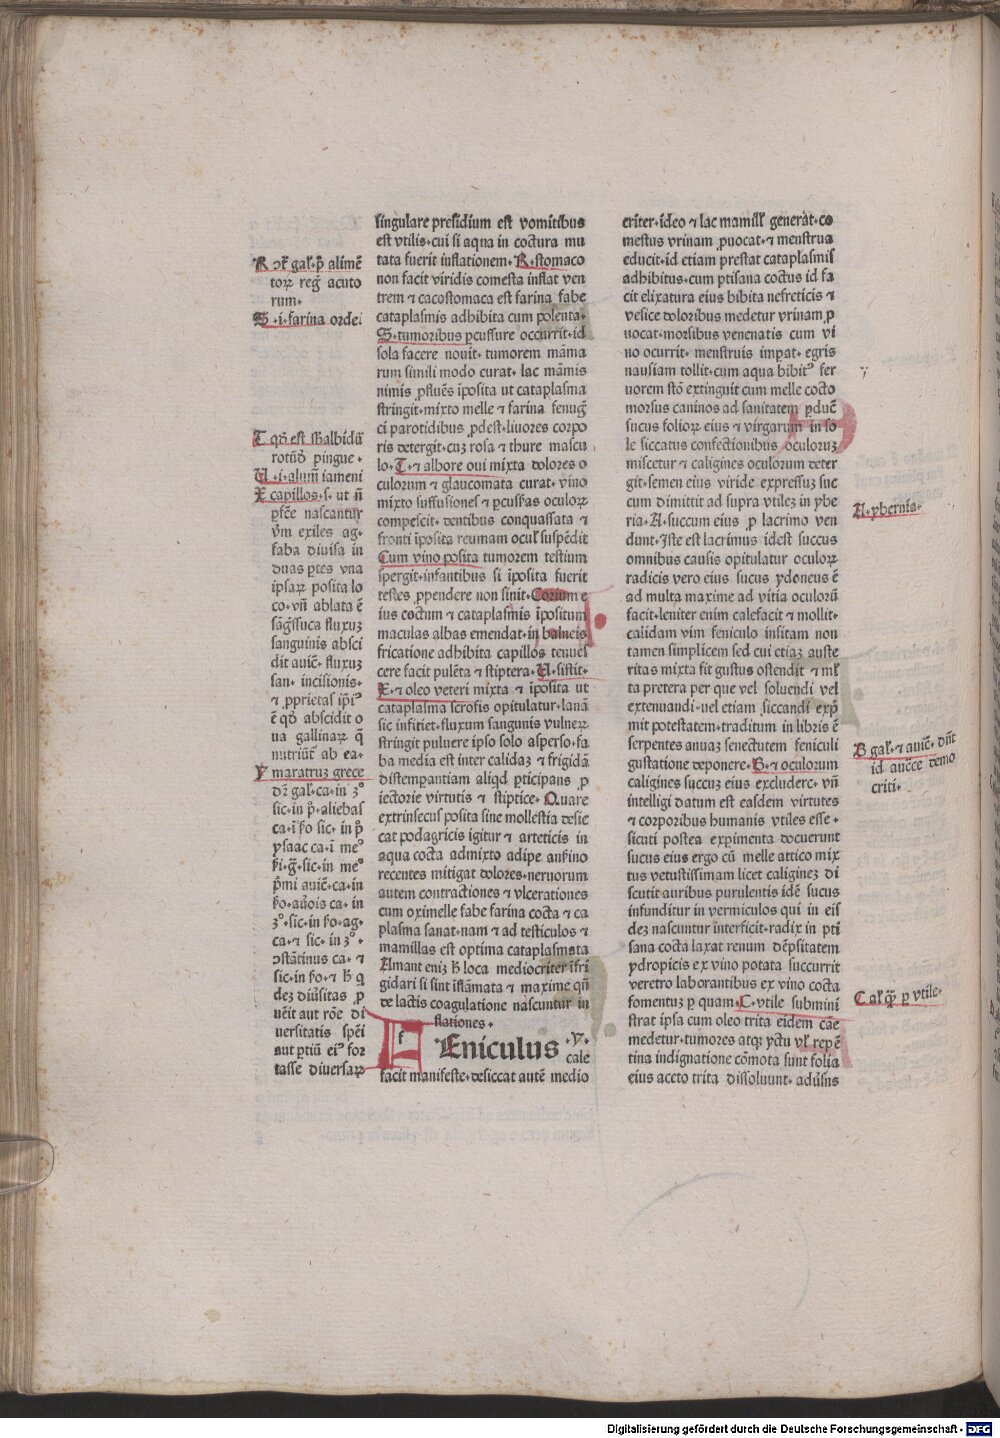 singulare presidium est vomitibus
est vtilis·cui si aqua in coctura mu
tata fuerit inflationem·R·stomaco
non facit viridis comesta inflat ven
trem ⁊ cacostomaca est farina fabe
cataplasmis adhibita cum polenta·
S·tumoribus ꝑcussure occurrit·id
sola facere nouit·tumorem māma
rum simili modo curat·lac māmis
nimis ꝓfluēs īposita ut cataplasma
stringit·mixto melle ⁊ farina fenug̃
ci parotidibus ꝓdest·liuores corpo
ris detergit·cuꝫ rosa ⁊ thure mascu
lo·T·⁊ albore oui mixta dolores o
culorum ⁊ glaucomata curat·vino
mixto suffusiones ⁊ ꝑcussas oculoꝝ
compescit·dentibus conquassata ⁊
fronti īposita reumam ocul' suspēdit
Cum vino posita tumorem testium
spergit·infantibus si īposita fuerit
testes ꝓpendere non sinit·Corium e
ius coctum ⁊ cataplasmis īpositum
maculas albas emendat·in balneis
fricatione adhibita capillos tenues
cere facit pulēta ⁊ stiptera·V·sistit·
X·⁊ oleo veteri mixta ⁊ īposita ut
cataplasma scrofis opitulatur·lanā
sic infitiet·fluxum sangunis vulneꝝ
stringit puluere ipso solo asperso·fa
ba media est inter calidaꝫ ⁊ frigidā
distemperantiam aliqd ꝑticipans ꝓ
iectorie virtutis ⁊ stiptice·Quare
extrinsecus posita sine mollestia desic
cat podagricis igitur ⁊ arteticis in
aqua cocta admixto adipe ansino
recentes mitigat dolores·neruorum
autem contractiones ⁊ vlcerationes
cum oximelle fabe farina cocta ⁊ ca
plasma sanat·nam ⁊ ad testiculos ⁊
mamillas est optima cataplasmata
Amant eniꝫ h̄ loca mediocriter īfri
gidari si sint iflāmata ⁊ maxime qn̄
de lactis coagulatione nascuntur in
flationes·
f
Eniculus ·Y·
cale
facit manifeste·desiccat autē medio
criter·ideo ⁊ lac mamill' generat·co
mestus vrinam ꝓuocat·⁊ menstrua
educit·id etiam prestat cataplasmis
adhibitus·cum ptisana coctus id fa
cit elixatura eius bibita nefreticis ⁊
vesice doloribus medetur vrinam ꝓ
uocat·morsibus venenatis cum vi
no ocurrit·menstruis imꝑat·egris
nausiam tollit·cum aqua bibit' fer
uorem stō extinguit cum melle cocto
morsus caninos ad sanitatem ꝑduc̄
sucus folioꝝ eius ⁊ virgarum in so
le siccatus confectionibus oculoruꝫ
miscetur ⁊ caligines oculorum deter
git·semen eius viride expressuꝫ suc
cum dimittit ad supra vtilez in ybe
ria·A·succum eius ꝓ lacrimo ven
dunt·Iste est lacrimus idest succus
omnibus causis opitulatur oculoꝝ
radicis vero eius sucus ydoneus ē
ad multa maxime ad vitia oculorū
facit·leniter enim calefacit ⁊ mollit·
calidam vim feniculo insitam non
tamen simplicem sed cui etiaꝫ auste
ritas mixta sit gustus ostendit ⁊ ml'
ta pretera per que vel soluendi vel
extenuandi·uel etiam siccandi exp̄
mit potestatem·traditum in libris ē
serpentes anuaꝫ senectutem feniculi
gustatione deponere·B·⁊ oculorum
caligines succuꝫ eius excludere·vn̄
intelligi datum est easdem virtutes
⁊ corporibus humanis vtiles esse·
sicuti postea expimenta docuerunt
sucus eius ergo cū melle attico mix
tus vetustissimam licet caliginez di
scutit·auribus purulentis idē sucus
infunditur in vermiculos qui in eis
dez nascuntur interficit·radix in pti
sana cocta laxat renum dēpsitatem
ydropicis ex vino potata succurrit
veretro laborantibus ex vino cocta
fomentuꝫ ꝑ quam·C·vtile submini
strat ipsa cum oleo trita eidem cāe
medetur·tumores atqꝫ yctu vl' repē
tina indignatione cōmota sunt folia
eius aceto trita dissoluunt·adūsus
R ot̄ gal'·p̄ alimē
toꝝ reg̃ acuto
rum·
S·i·farina ordei
T qđ est albidū
rotūđ pingue·
V·i·alum̄ iameni
X capillos·s·ut n̄
ꝑfc̄e nascantur
vm̄ exiles ag·
faba diuisa in
duas ꝑtes vna
ipsaꝝ posita lo
co·vn̄ ablata ē
sāg̃ssuca fluxuꝫ
sanguinis absci
dit auic̄·fluxuꝫ
san·incisionis·
⁊ ꝓprietas ip̄i'
ē qđ abscidit o
ua gallinaꝝ q̄
nutriūt ab ea·
Y maratruꝫ grece
dr̄ gal'·ca·in 3°
sic·in p̄·aliebas
ca·ī ſo sic·in p̄
ysaac ca·ī me°
ſi·g̃·sic·in me°
p̄mi auic̄·ca·in
ſo·aūois ca·in
3°·sic·in ſo·ag·
ca·⁊ sic·in 3°·
ↄstātinus ca·⁊
sic·in ſo·⁊ h̄ q
dez diūsitas ꝓ
uēit aut rōe di
uersitatis spēi
aut ꝑtiū ei' for
tasse diuersaꝝ
A·ybernia·
B gal'·⁊ auic̄·dn̄t
id aucc̄e demo
criti·
C al' q̄ꝫ ꝑ vtile·
Digitalisierung gefördert durch die Deutsche Forschungsgemeinschaft · DFG